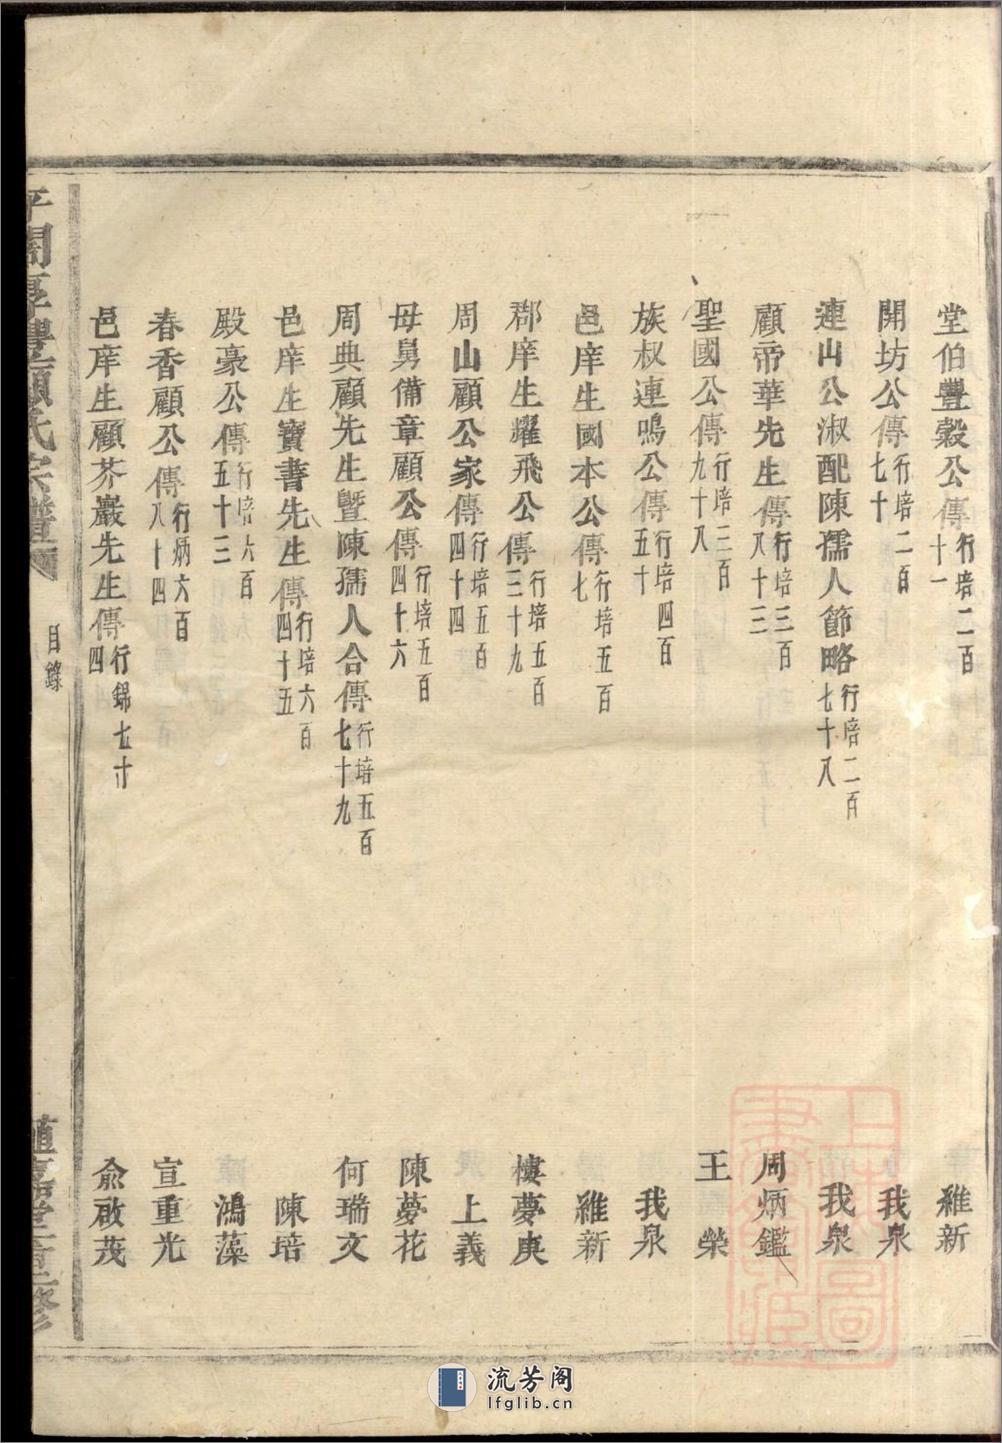 堂伯豐穀公傳行培二百十一 維新
開坊公傳行培二百七十 我泉
連山公淑配陳孺人節略行培二百七十八 我泉
顧帝華先生傳行培三百八十三 周炳鑑
聖國公傳行培三百九十八 王榮
族叔連鳴公傳行培四百五十 我泉
邑庠生國本公傳行培五百七 維新
郡庠生耀飛公傳行培五百三十九 樓夢庚
周山顧公家傳行培五百四十四 上義
母舅備章顧公傳行培五百四十六 陳夢花
周典顧先生暨陳孺人合傳行培五百七十九 何瑞文
邑庠生寶書先生傳行培六百四十五 陳培
殿豪公傳行培六百五十三 鴻藻
春香顧公傳行炳六百八十四 宣重光
邑庠生顧芥巖先生傳行錦七十四 俞啟茂
顧氏宗譜
目錄
上海圖書館藏
流芳阁
lfglib.cn